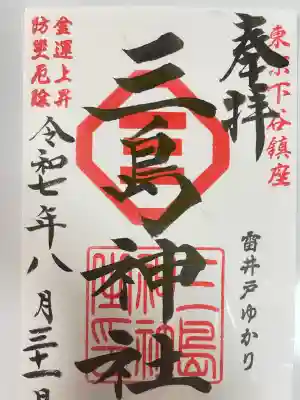 東京下谷鎮座
奉拝
雷井戸ゆかり
三島神社
三島
神社
金運上昇
防災厄除
令和七年八月三十一日